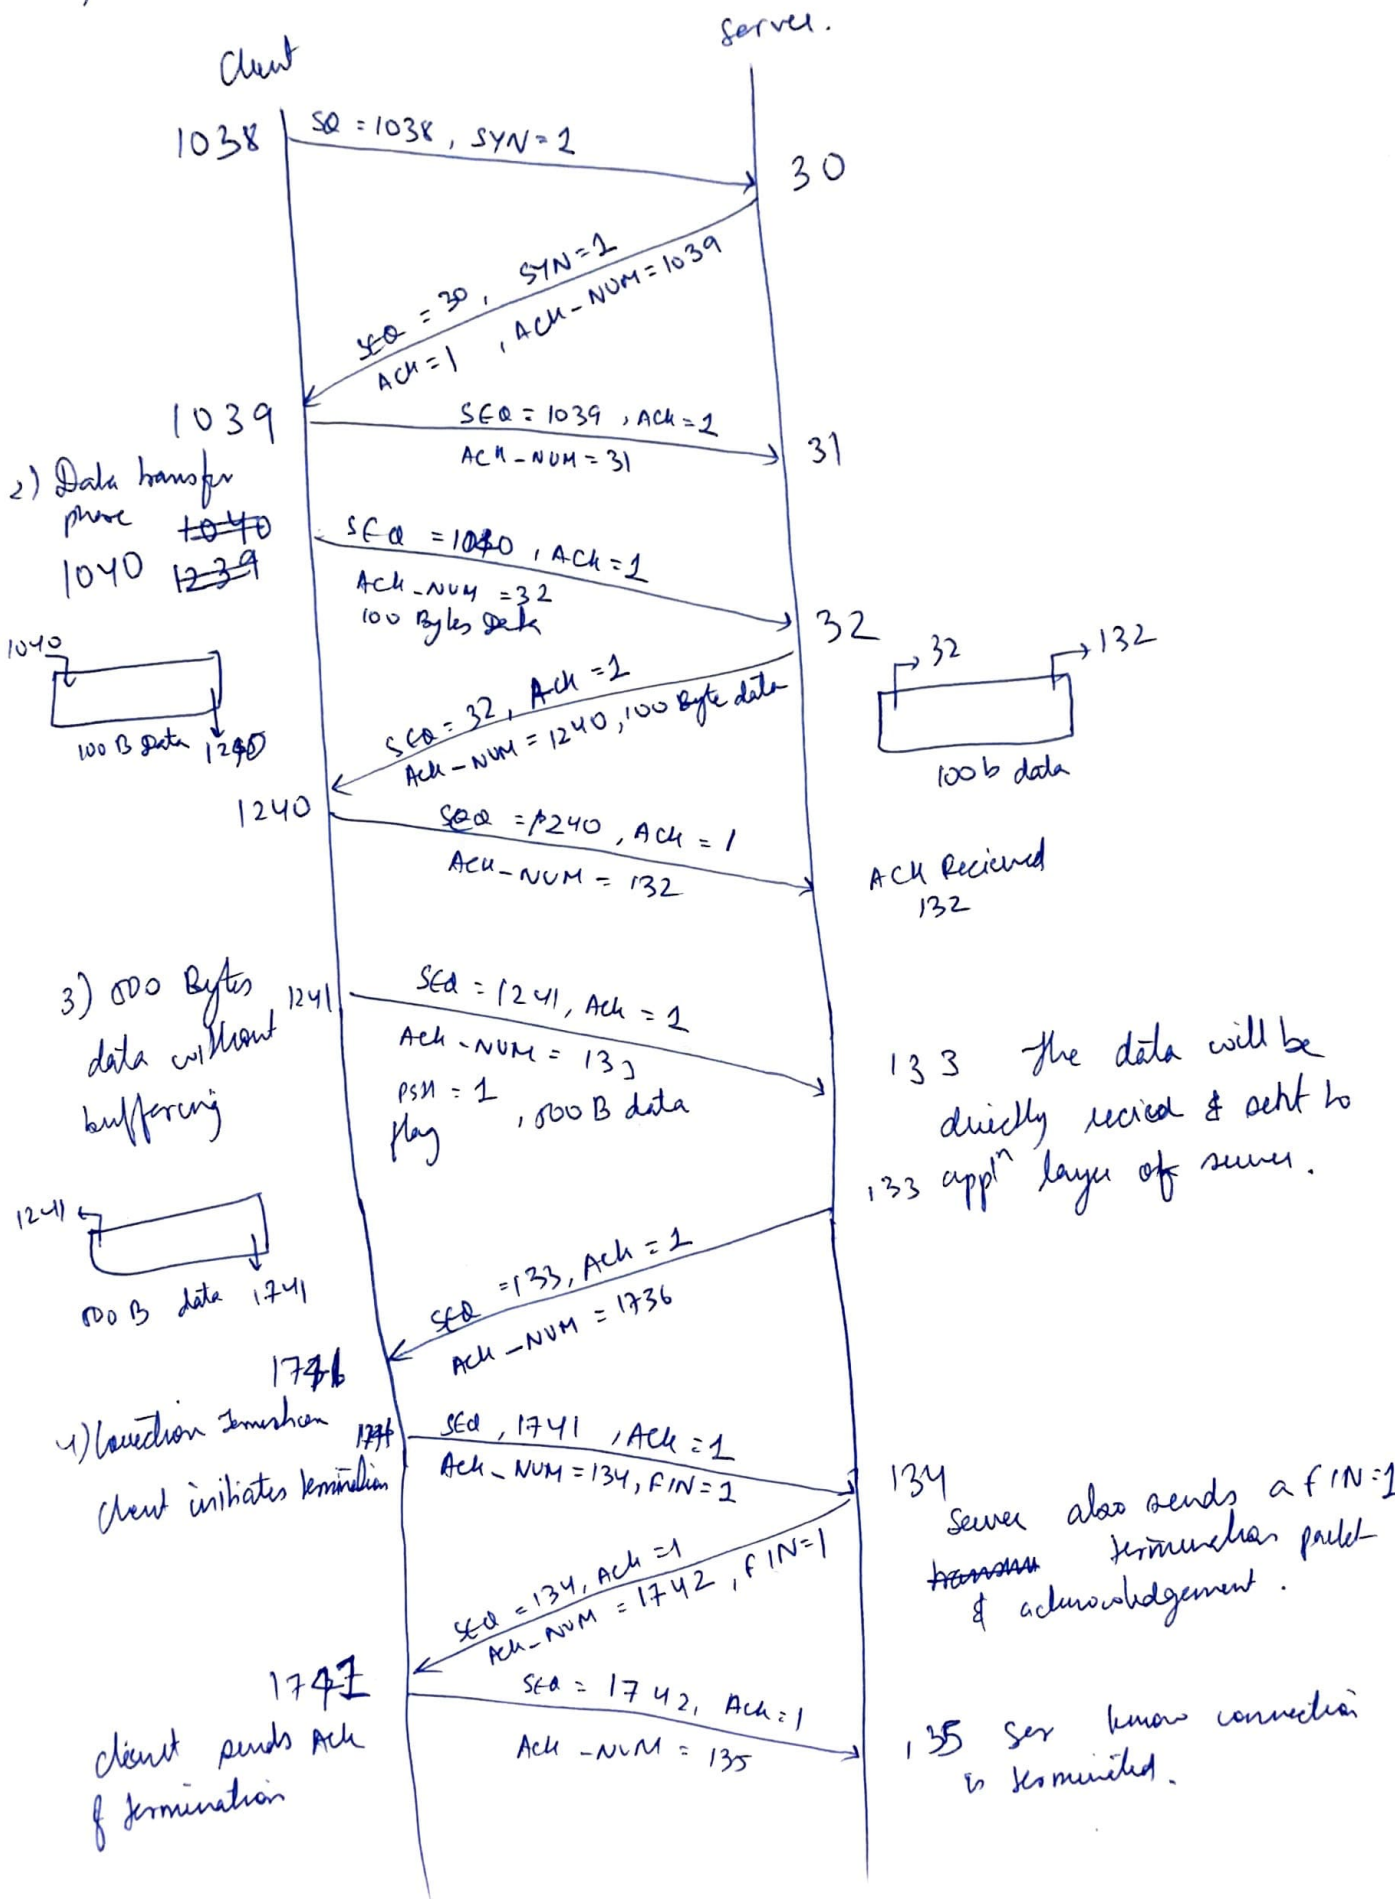 Client
Server.
1038
SQ = 1038, SYN = 1
30
SEQ = 30, SYN = 1
ACK = 1, ACK-NUM = 1039
1039
SEQ = 1039, ACK = 1
ACK-NUM = 31
31
2) Data transfer
phase 1040
1040 1239
SEQ = 1040, ACK = 1
ACK-NUM = 32
100 Bytes Data
32
1040
100 B Data 1240
SEQ = 32, ACK = 1
ACK-NUM = 1240, 100 Byte data
32
132
100 b data
1240
SEQ = 1240, ACK = 1
ACK-NUM = 132
ACK Recieved
132
3) 500 Bytes
data without
buffering
1241
SEQ = 1241, ACK = 1
ACK-NUM = 133
PSH = 1
flag
, 500 B data
133 The data will be
directly recied & sent to
133 appln layer of server.
1241
500 B data 1741
SEQ = 133, ACK = 1
ACK-NUM = 1736
4) Connection Termination
client initiates termination
SEQ, 1741, ACK = 1
ACK-NUM = 134, FIN = 1
134
Server also sends a FIN = 1
termination packet
& acknowledgement.
SEQ = 134, ACK = 1
ACK-NUM = 1742, FIN = 1
client sends ACK
of termination
SEQ = 1742, ACK = 1
ACK-NUM = 135
135 Ser know connection
is terminated.